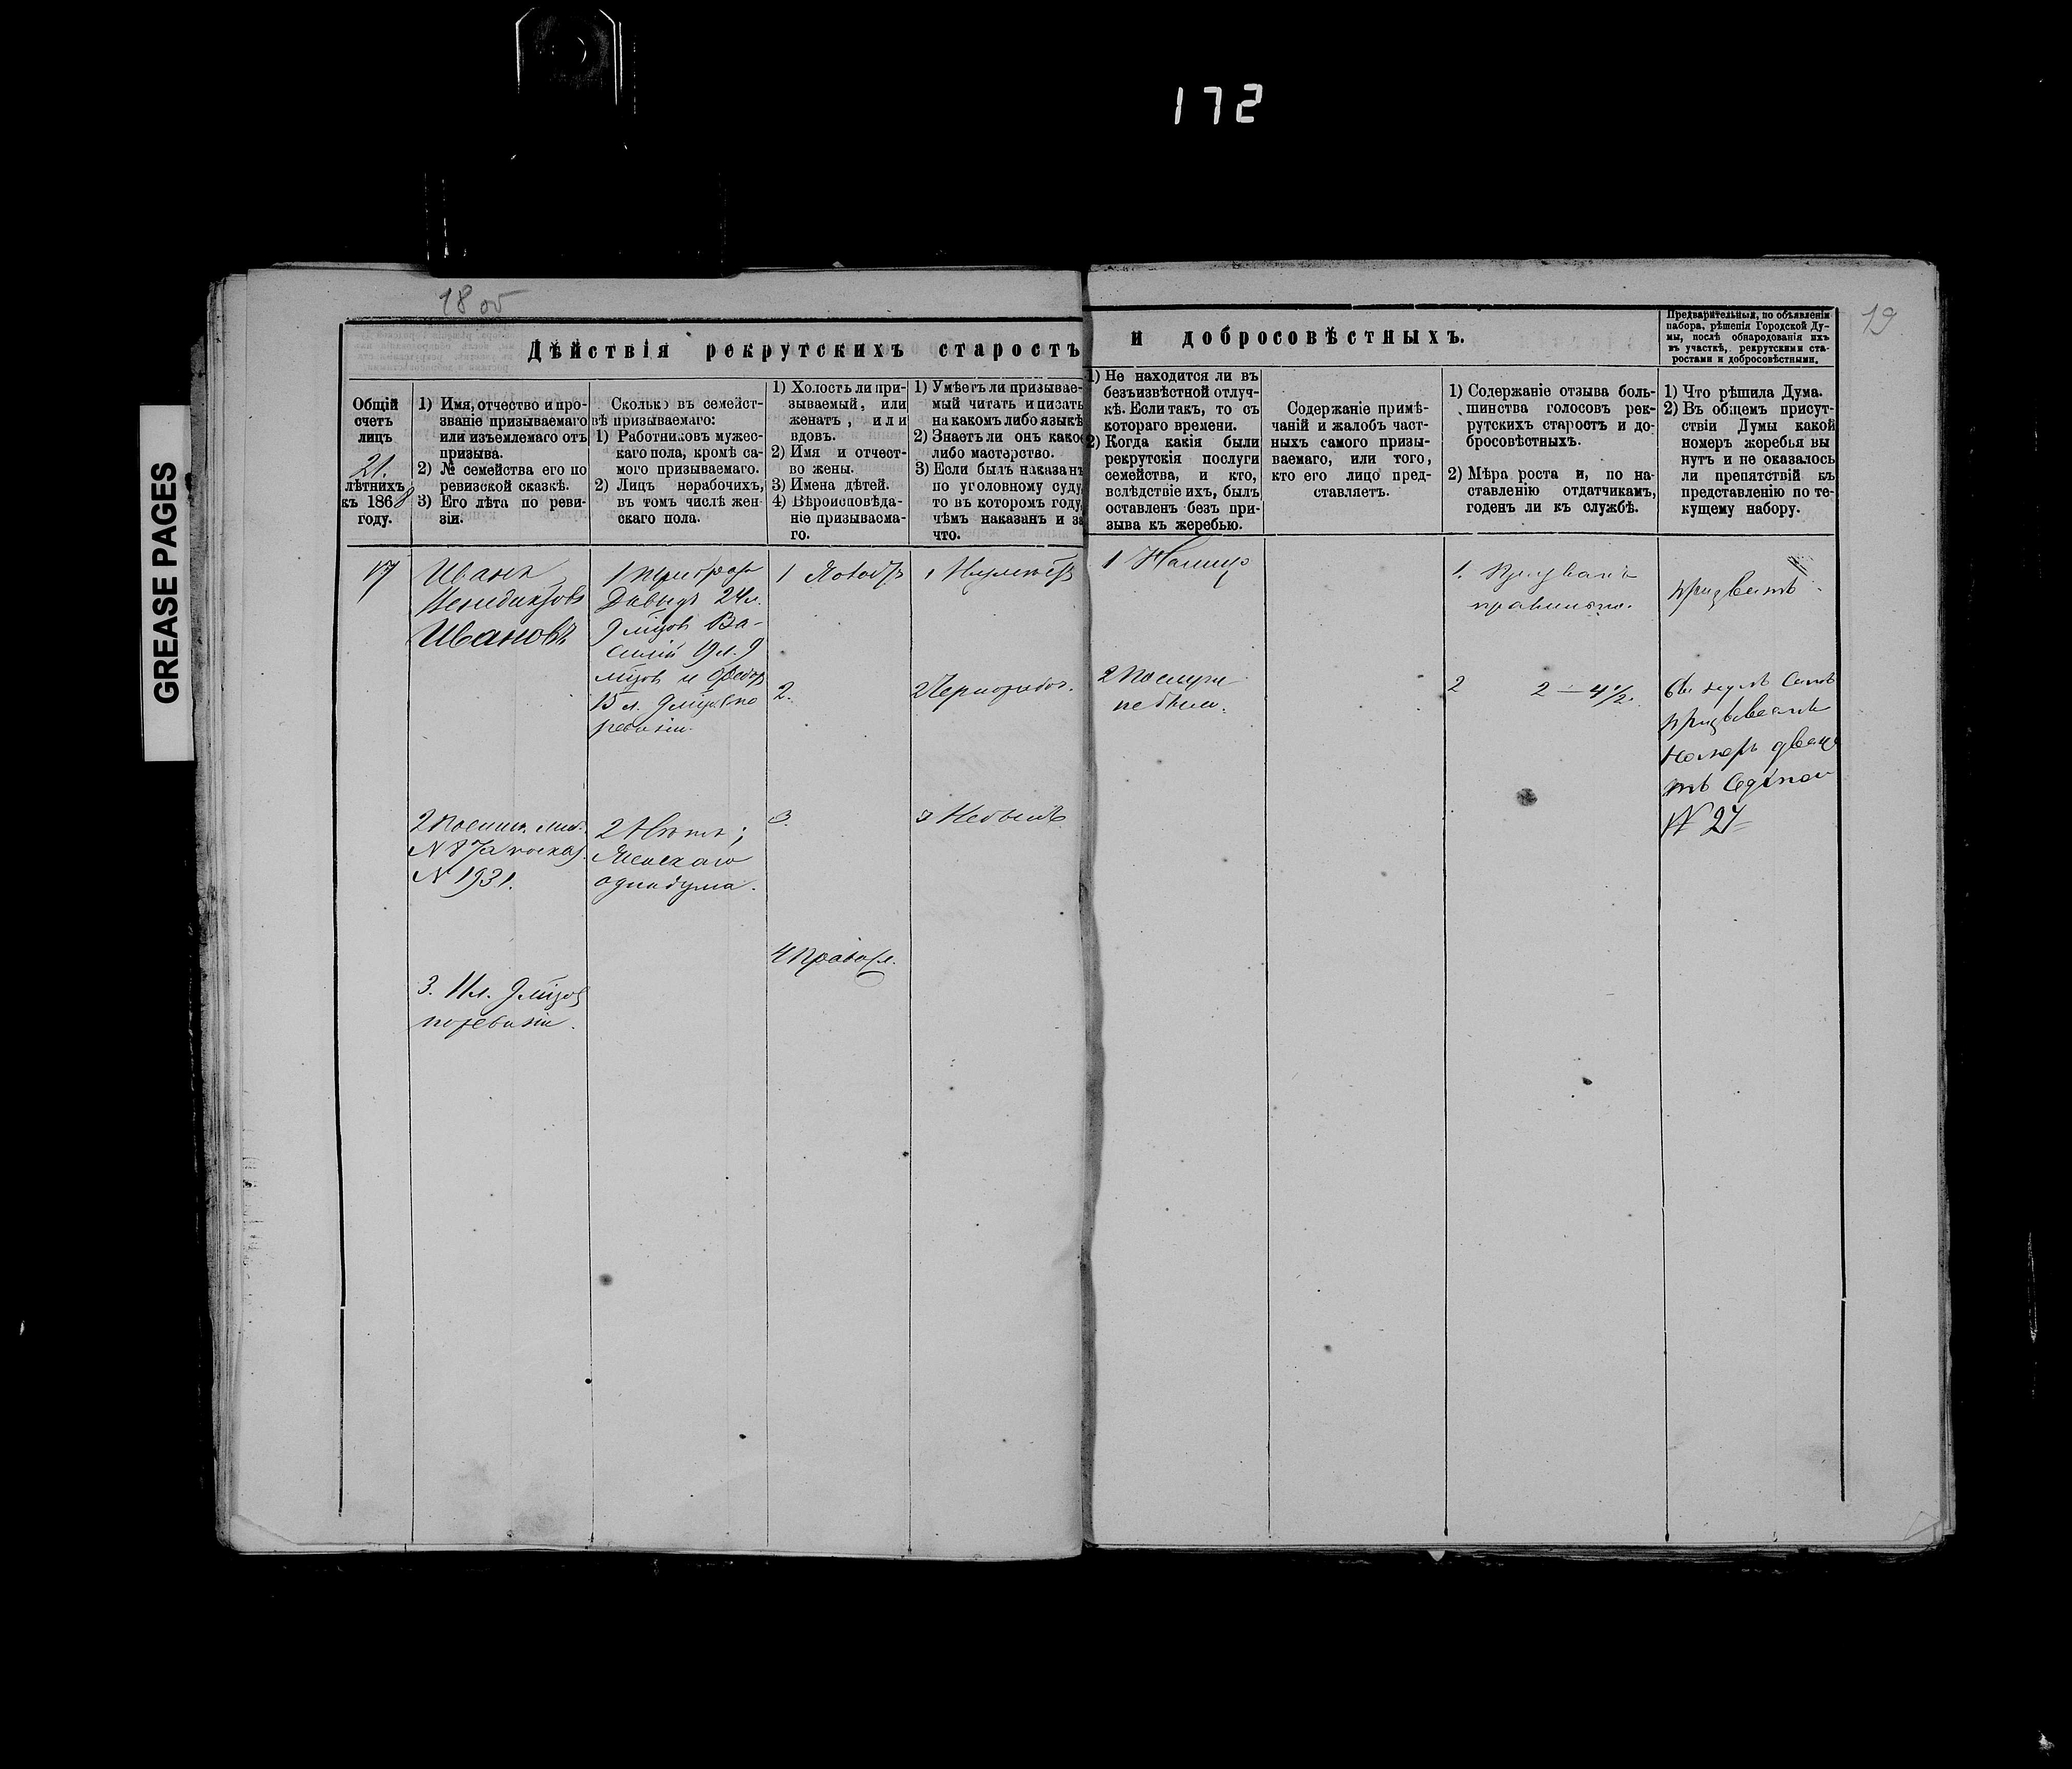 172
GREASE PAGES
18 об
19
Дѣйствія рекрутскихъ старостъ
и добросовѣстныхъ.
Предварительныя, по объявленіи
набора, рѣшенія Городской Ду-
мы, послѣ обнародованія ихъ
въ участкѣ, рекрутскими ста-
ростами и добросовѣстными.
Общій
счетъ
лицъ
21.
лѣтнихъ
къ 1868
году.
1) Имя, отчество и про-
званіе призываемаго
или изъемлемаго отъ
призыва.
2) № семейства его по
ревизской сказкѣ.
3) Его лѣта по реви-
зіи.
Сколько въ семейст-
вѣ призываемаго:
1) Работниковъ мужес-
каго пола, кромѣ са-
мого призываемаго.
2) Лицъ нерабочихъ,
въ томъ числѣ жен
скаго пола.
1) Холостъ ли при-
зываемый, или
женатъ, или
вдовъ.
2) Имя и отчест-
во жены.
3) Имена дѣтей.
4) Вѣроисповѣда-
ніе призываема-
го.
1) Умѣетъ ли призывае-
мый читать и писать
на какомъ либо языкѣ
2) Знаетъ ли онъ како
либо мастерство.
3) Если былъ наказанъ
по уголовному суду,
то въ которомъ году,
чѣмъ наказанъ и за
что.
1) Не находится ли въ
безъизвѣстной отлуч-
кѣ. Если такъ, то съ
котораго времени.
2) Когда какія были
рекрутскія послуги
семейства, и кто,
вслѣдствіе ихъ, былъ
оставленъ безъ при-
зыва къ жеребью.
Содержаніе примѣ-
чаній и жалобъ част-
ныхъ самого призы-
ваемаго, или того,
кто его лицо пред-
ставляетъ.
1) Содержаніе отзыва боль-
шинства голосовъ рек-
рутскихъ старостъ и до-
бросовѣстныхъ.
2) Мѣра роста и, по на-
ставленію отдатчикамъ,
годенъ ли къ службѣ.
1) Что рѣшила Дума.
2) Въ общемъ присут-
ствіи Думы какой
номеръ жеребья вы
нутъ и не оказалось
ли препятствій къ
представленію по те-
кущему набору.
17
Иванъ
Иванов
№ 1931.
3. 11 л. 9 мѣсяцов
по ревизіи.
Давыдъ 24 л.
9 мѣсяцов Ва-
силій 19 л. 9
мѣсяцов и Федор
15 л. 9 мѣсяцов по
ревизіи.
2 Нѣтъ;
Женскаго
одна душа.
1
2.
3.
4 Правосл.
1
2 Чернорабоч.
3 Не былъ
1
2 Послуги
не было.
1. Призванъ
правильно.
2 2 — 4 1/2.
призвать
призываемъ
номеръ двадца
ть
№ 27